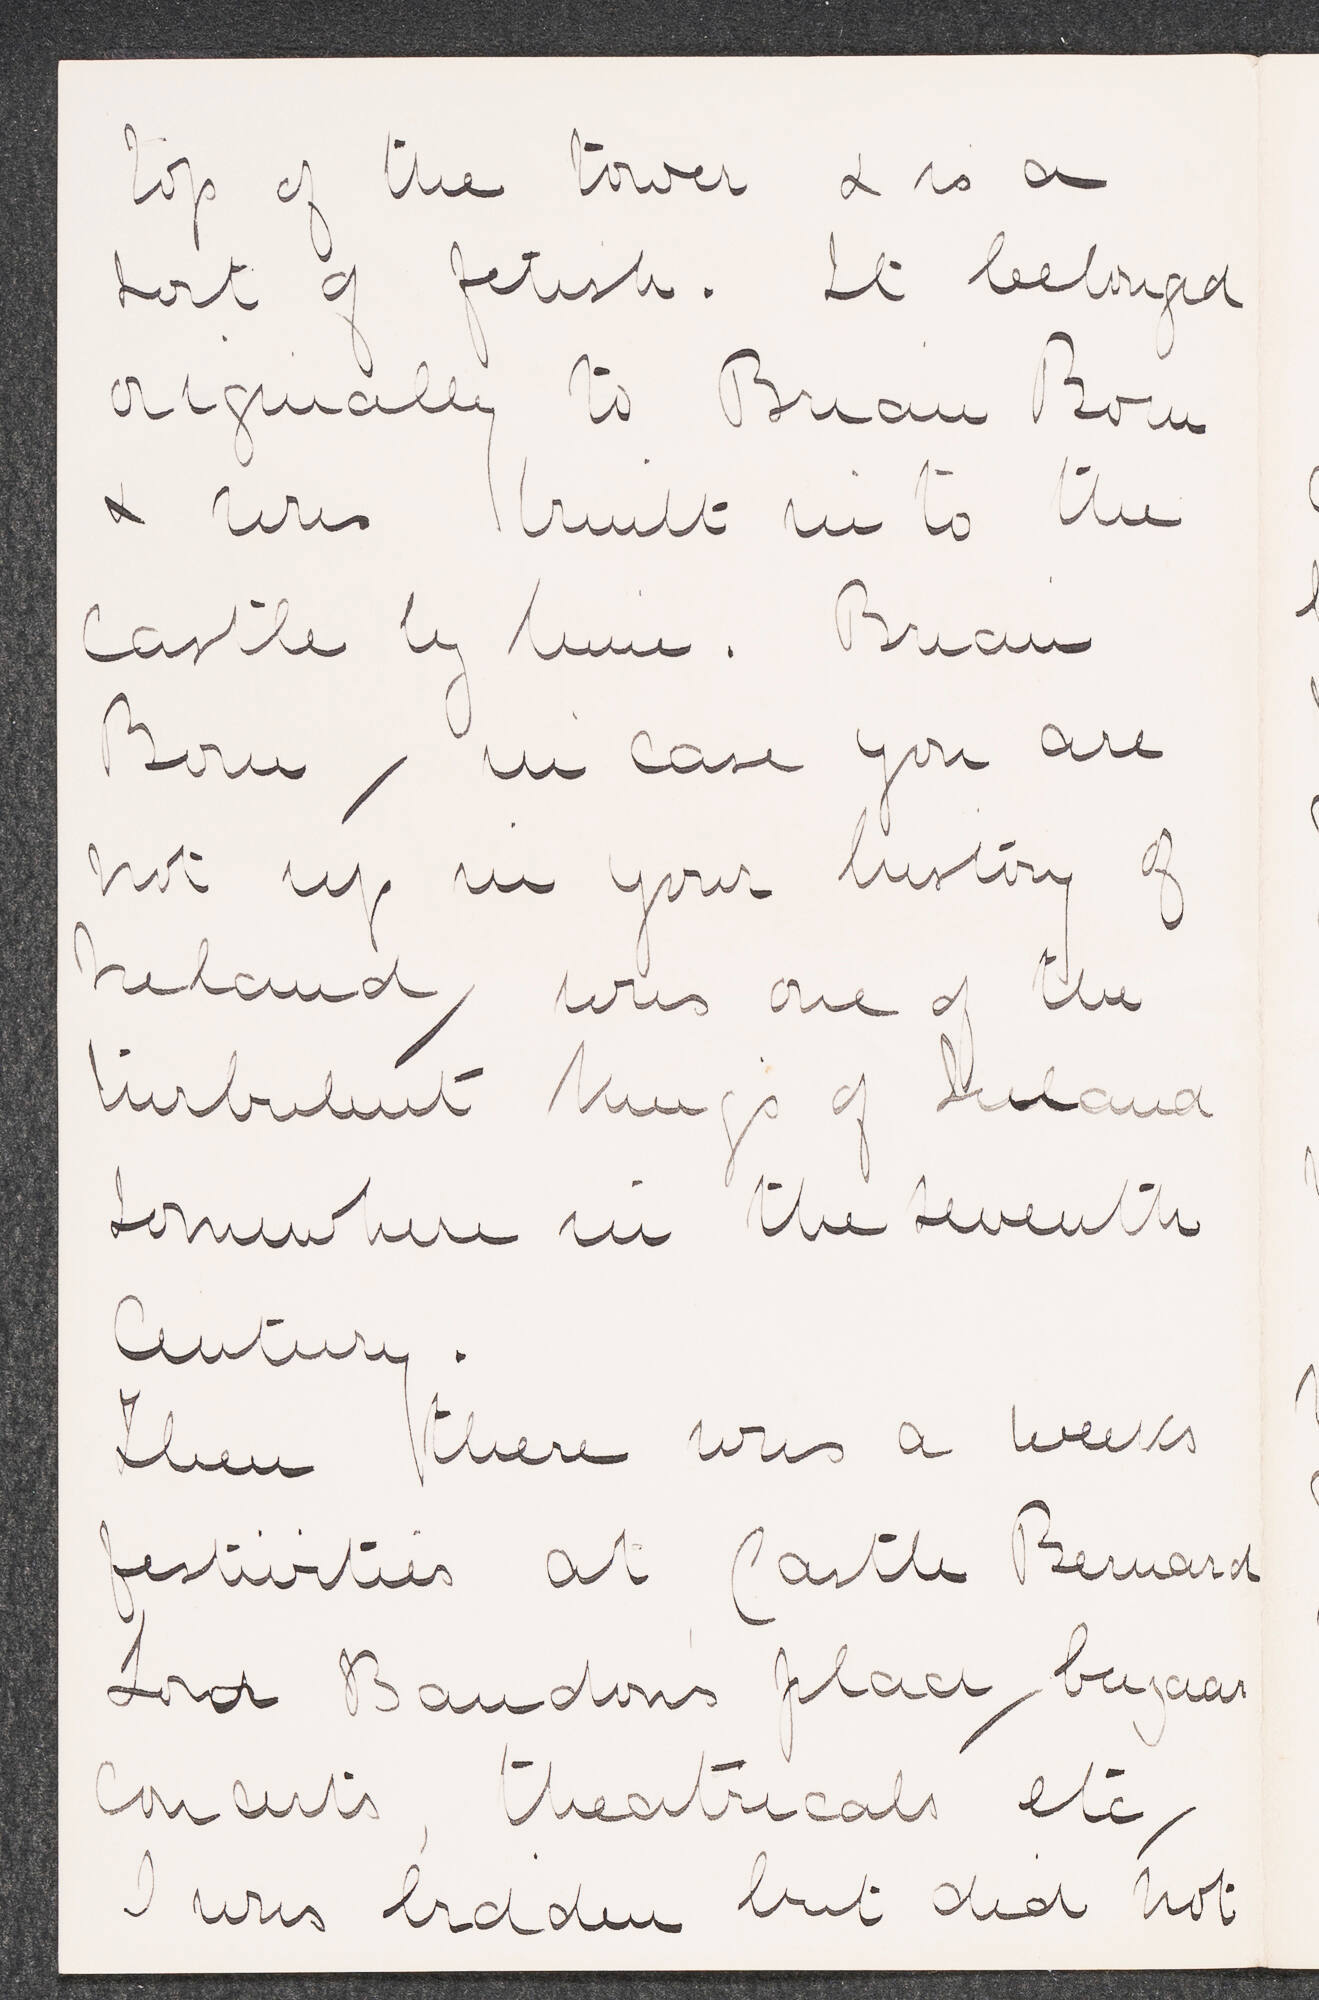 top of the tower & is a
sort of fetish. It belonged
originally to Brian Boru
& was built in to the
Castle by him. Brian
Boru, in case you are
not up in your history of
Ireland, was one of the
turbulent Kings of Ireland
somewhere in the seventh
Century.
Then there was a weeks
festivities at Castle Bernard
Lord Bandon's place, bazaar
concerts, theatricals etc,
I was bidden but did not